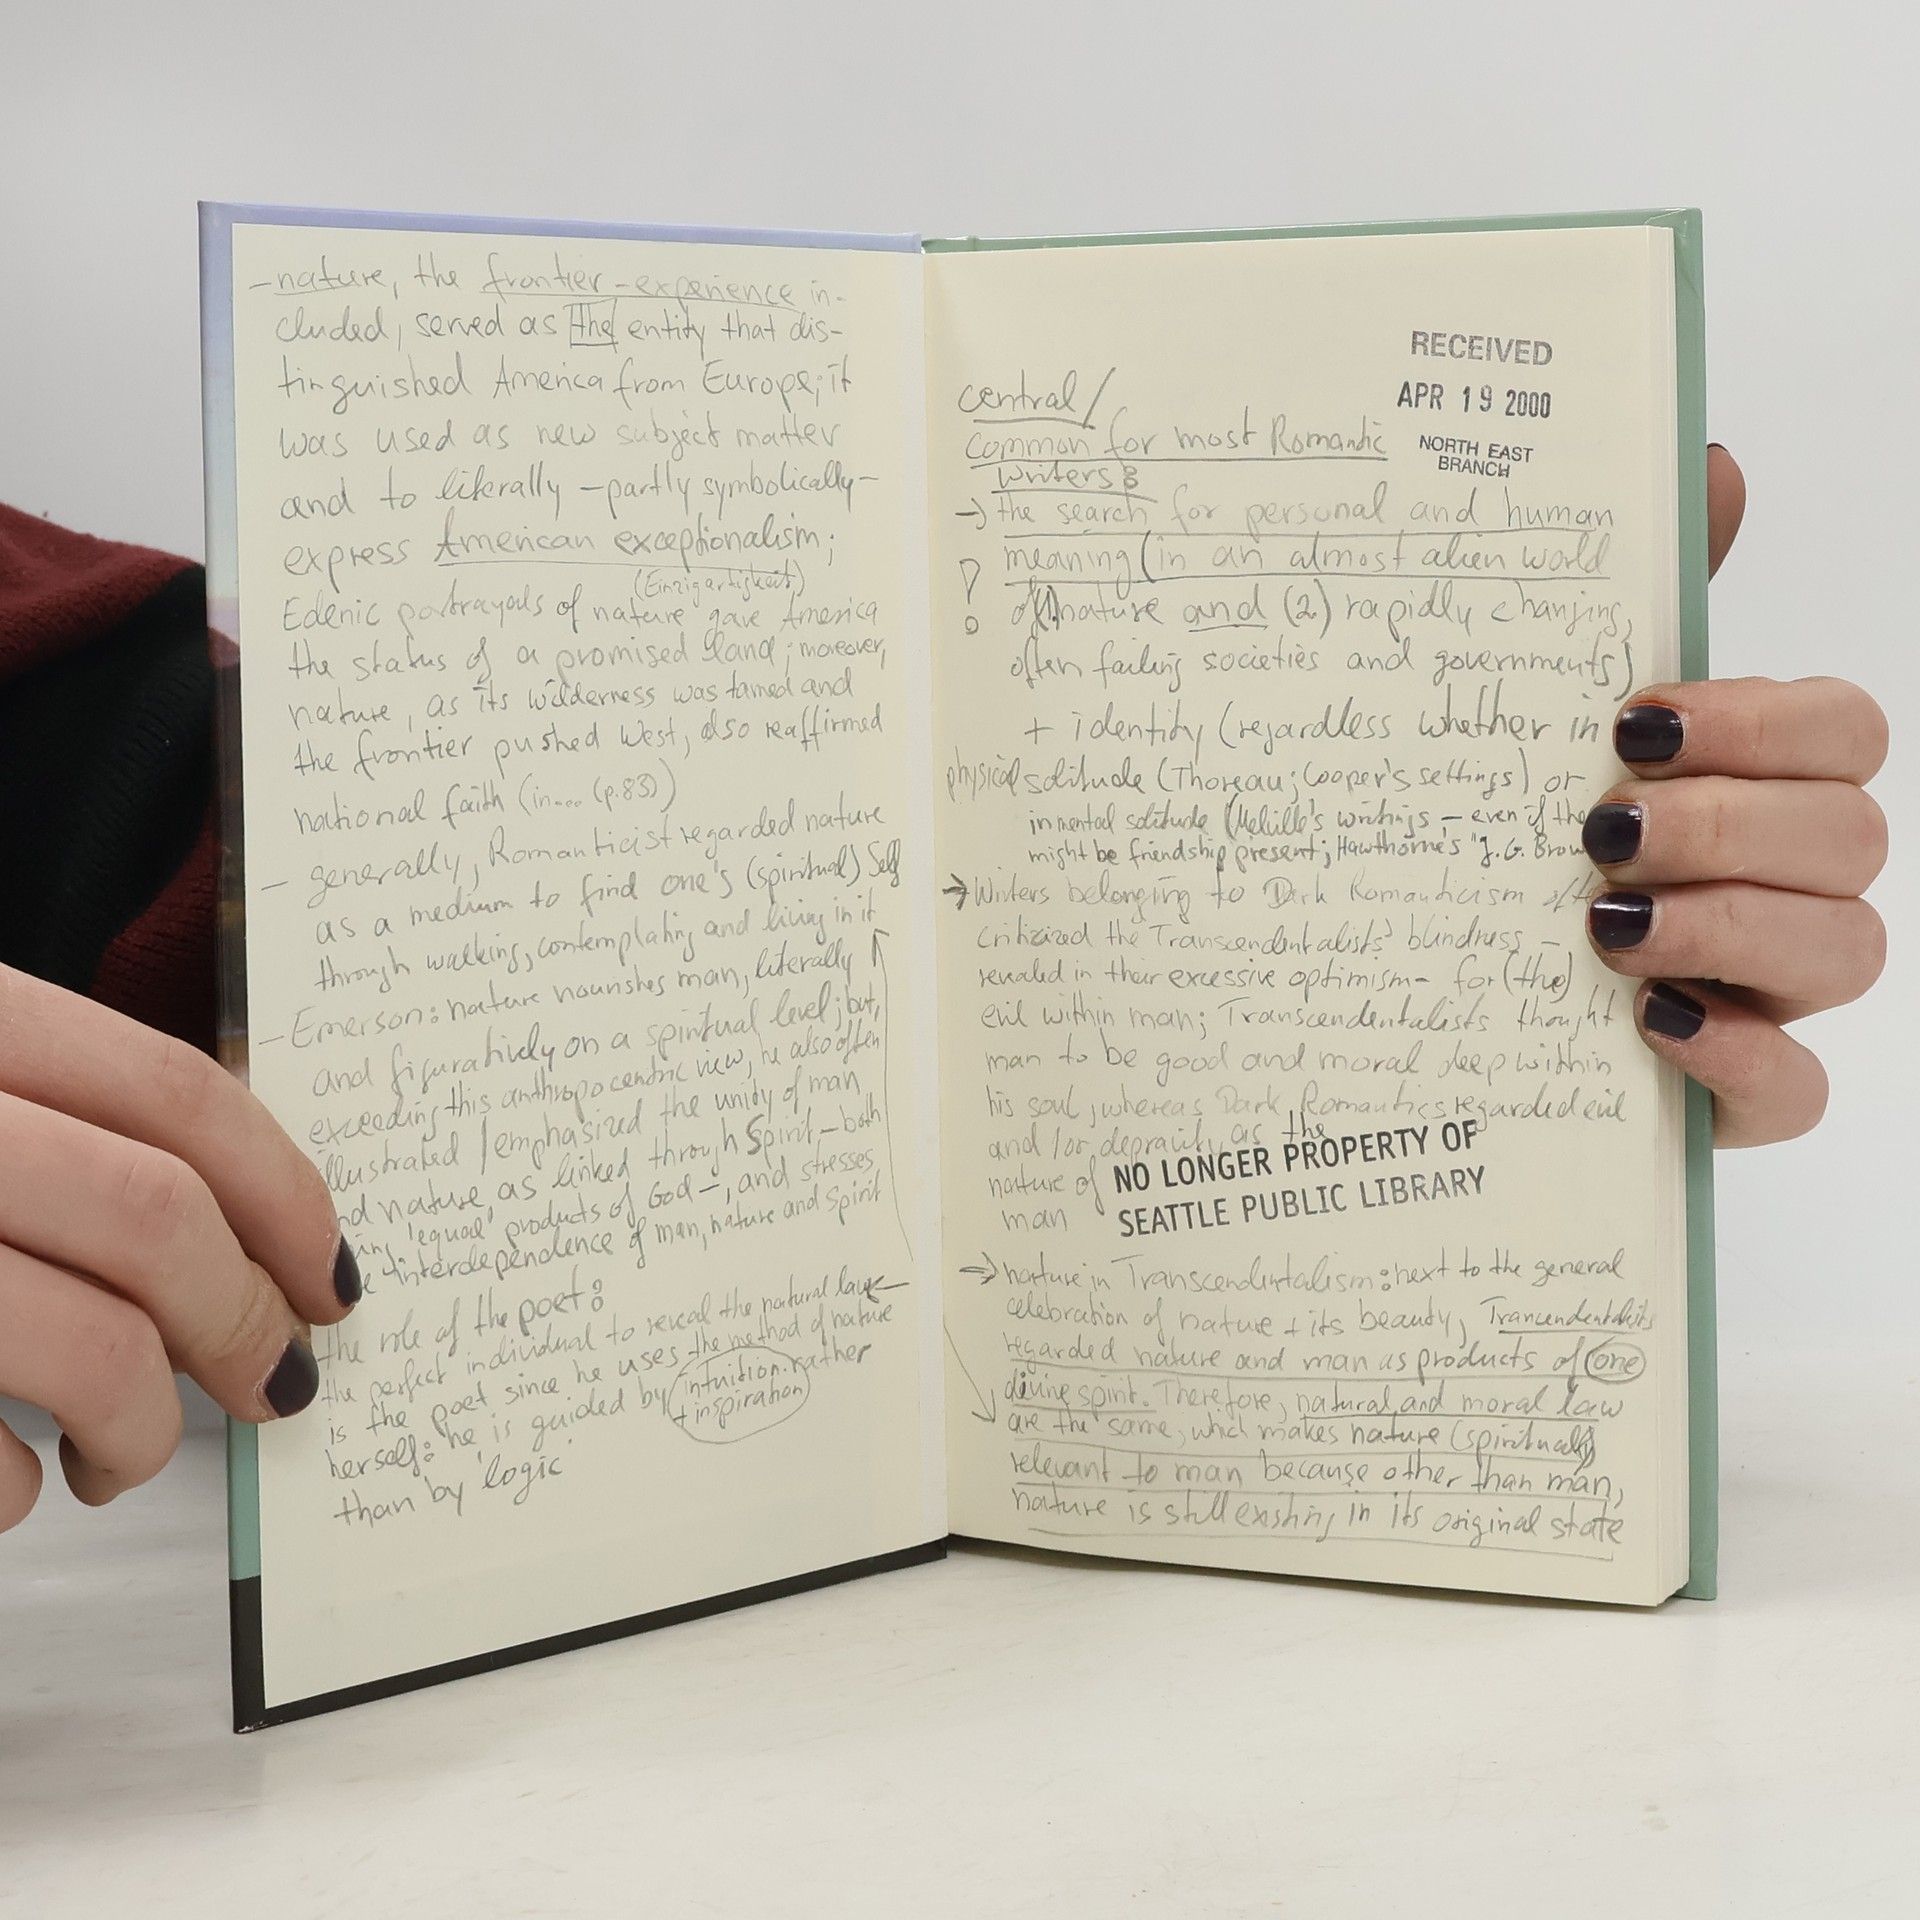 – nature, the frontier-experience in-
cluded, served as the entity that dis-
tinguished America from Europe; it
was used as new subject matter
and to literally – partly symbolically –
express American exceptionalism;
(Einzigartigkeit)
Edenic portrayals of nature gave America
the status of a promised land; moreover,
nature, as its wilderness was tamed and
the frontier pushed West, also reaffirmed
national faith (in... (p.83))
– generally, Romanticist regarded nature
as a medium to find one's (spiritual) Self
through walking, contemplating and living in it
– Emerson: nature nourishes man, literally
and figuratively on a spiritual level; but,
exceeding this anthropocentric view, he also often
illustrated / emphasized the unity of man
nd nature, as linked through Spirit – both
'equal' products of God –, and stresses
interdependence of man, nature and Spirit
the role of the poet:
the perfect individual to reveal the natural law
is the poet since he uses the method of nature
herself: he is guided by intuition rather
+ inspiration
than by 'logic'
RECEIVED
APR 19 2000
NORTH EAST
BRANCH
central/
common for most Romantic
writers:
→ the search for personal and human
meaning (in an almost alien world
of (1) nature and (2) rapidly changing,
often failing societies and governments)
+ identity (regardless whether in
physical solitude (Thoreau; Cooper's settings) or
in mental solitude (Melville's writings – even if the
might be friendship present; Hawthorne's "J. G. Brow
→ Writers belonging to Dark Romanticism
criticized the Transcendentalists' blindness –
revealed in their excessive optimism – for (the)
evil within man; Transcendentalists thought
man to be good and moral deep within
his soul, whereas Dark Romantics regarded evil
and / or depravity as the
nature of
man
NO LONGER PROPERTY OF
SEATTLE PUBLIC LIBRARY
→ nature in Transcendentalism: next to the general
celebration of nature + its beauty, Trancendentalists
regarded nature and man as products of one
divine spirit. Therefore, natural and moral law
are the same, which makes nature (spiritually)
relevant to man because other than man,
nature is still existing in its original state